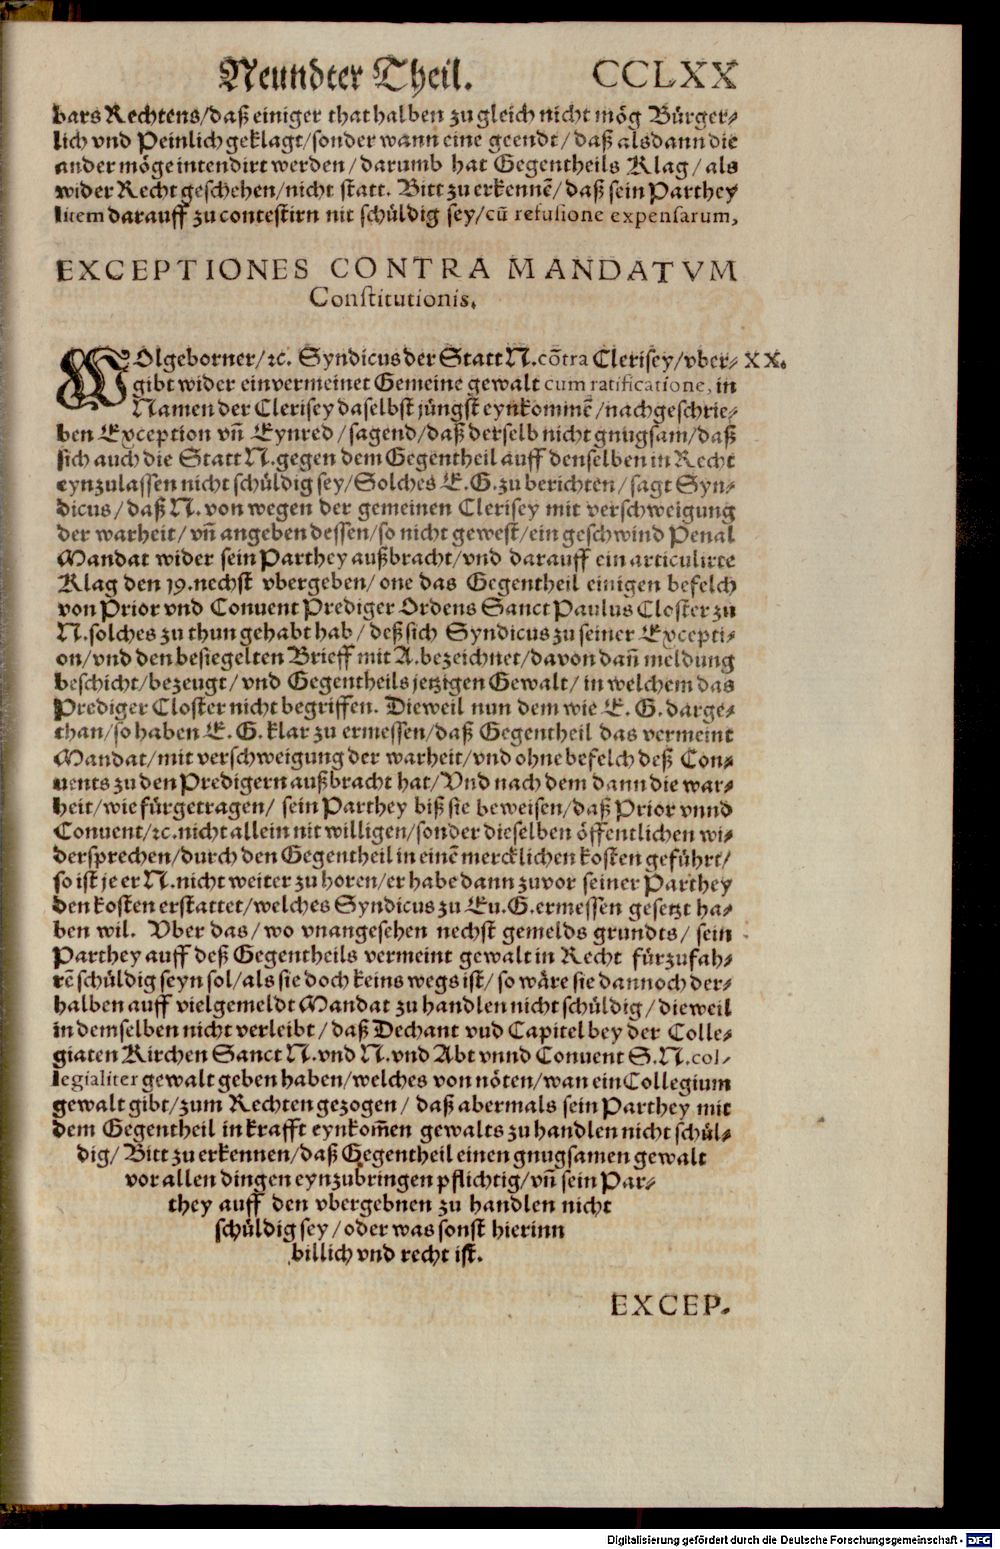 Neundter Theil. CCLXX
bars Rechtens/daß einiger that halben zu gleich nicht mög Bürger-
lich vnd Peinlich geklagt/sonder wann eine geendt/daß alsdann die
ander möge intendirt werden/darumb hat Gegentheils Klag/als
wider Recht geschehen/nicht statt. Bitt zu erkennē/daß sein Parthey
litem darauff zu contestirn nit schüldig sey/cū refusione expensarum,
EXCEPTIONES CONTRA MANDATVM
Constitutionis.
WOlgeborner/ꝛc. Syndicus der Statt N. cōtra Clerisey/vber- XX.
gibt wider ein vermeinet Gemeine gewalt cum ratificatione, in
Namen der Clerisey daselbst jüngst eynkommē/nachgeschrie-
ben Exception vn̄ Eynred/sagend/daß derselb nicht gnugsam/daß
sich auch die Statt N. gegen dem Gegentheil auff denselben in Recht
eynzulassen nicht schüldig sey/Solches E. G. zu berichten/sagt Syn-
dicus/daß N. von wegen der gemeinen Clerisey mit verschweigung
der warheit/vn̄ angeben dessen/so nicht gewest/ein geschwind Penal
Mandat wider sein Parthey außbracht/vnd darauff ein articulirte
Klag den 19. nechst vbergeben/one das Gegentheil einigen befelch
von Prior vnd Conuent Prediger Ordens Sanct Paulus Closter zu
N. solches zu thun gehabt hab/deß sich Syndicus zu seiner Excepti-
on/vnd den besiegelten Brieff mit A. bezeichnet/davon dan̄ meldung
beschicht/bezeugt/vnd Gegentheils jetzigen Gewalt/in welchem das
Prediger Closter nicht begriffen. Dieweil nun dem wie E. G. darge-
than/so haben E. G. klar zu ermessen/daß Gegentheil das vermeint
Mandat/mit verschweigung der warheit/vnd ohne befelch deß Con-
uents zu den Predigern außbracht hat/Vnd nach dem dann die war-
heit/wie fürgetragen/sein Parthey biß sie beweisen/daß Prior vnnd
Conuent/ꝛc. nicht allein nit willigen/sonder dieselben öffentlichen wi-
dersprechen/durch den Gegentheil in einē mercklichen kosten geführt/
so ist je er N. nicht weiter zu horen/er habe dann zuvor seiner Parthey
den kosten erstattet/welches Syndicus zu Eu. G. ermessen gesetzt ha-
ben wil. Vber das/wo vnangesehen nechst gemelds grundts/sein
Parthey auff deß Gegentheils vermeint gewalt in Recht fürzufah-
rē schüldig seyn sol/als sie doch keins wegs ist/so wäre sie dannoch der-
halben auff vielgemeldt Mandat zu handlen nicht schüldig/dieweil
in demselben nicht verleibt/daß Dechant vud Capitel bey der Colle-
giaten Kirchen Sanct N. vnd N. vnd Abt vnnd Conuent S. N. col-
legialiter gewalt geben haben/welches von nöten/wan ein Collegium
gewalt gibt/zum Rechten gezogen/daß abermals sein Parthey mit
dem Gegentheil in krafft eynkom̄en gewalts zu handlen nicht schül-
dig/Bitt zu erkennen/daß Gegentheil einen gnugsamen gewalt
vor allen dingen eynzubringen pflichtig/vn̄ sein Par-
they auff den vbergebnen zu handlen nicht
schüldig sey/oder was sonst hierinn
billich vnd recht ist.
EXCEP.
Digitalisierung gefördert durch die Deutsche Forschungsgemeinschaft - DFG